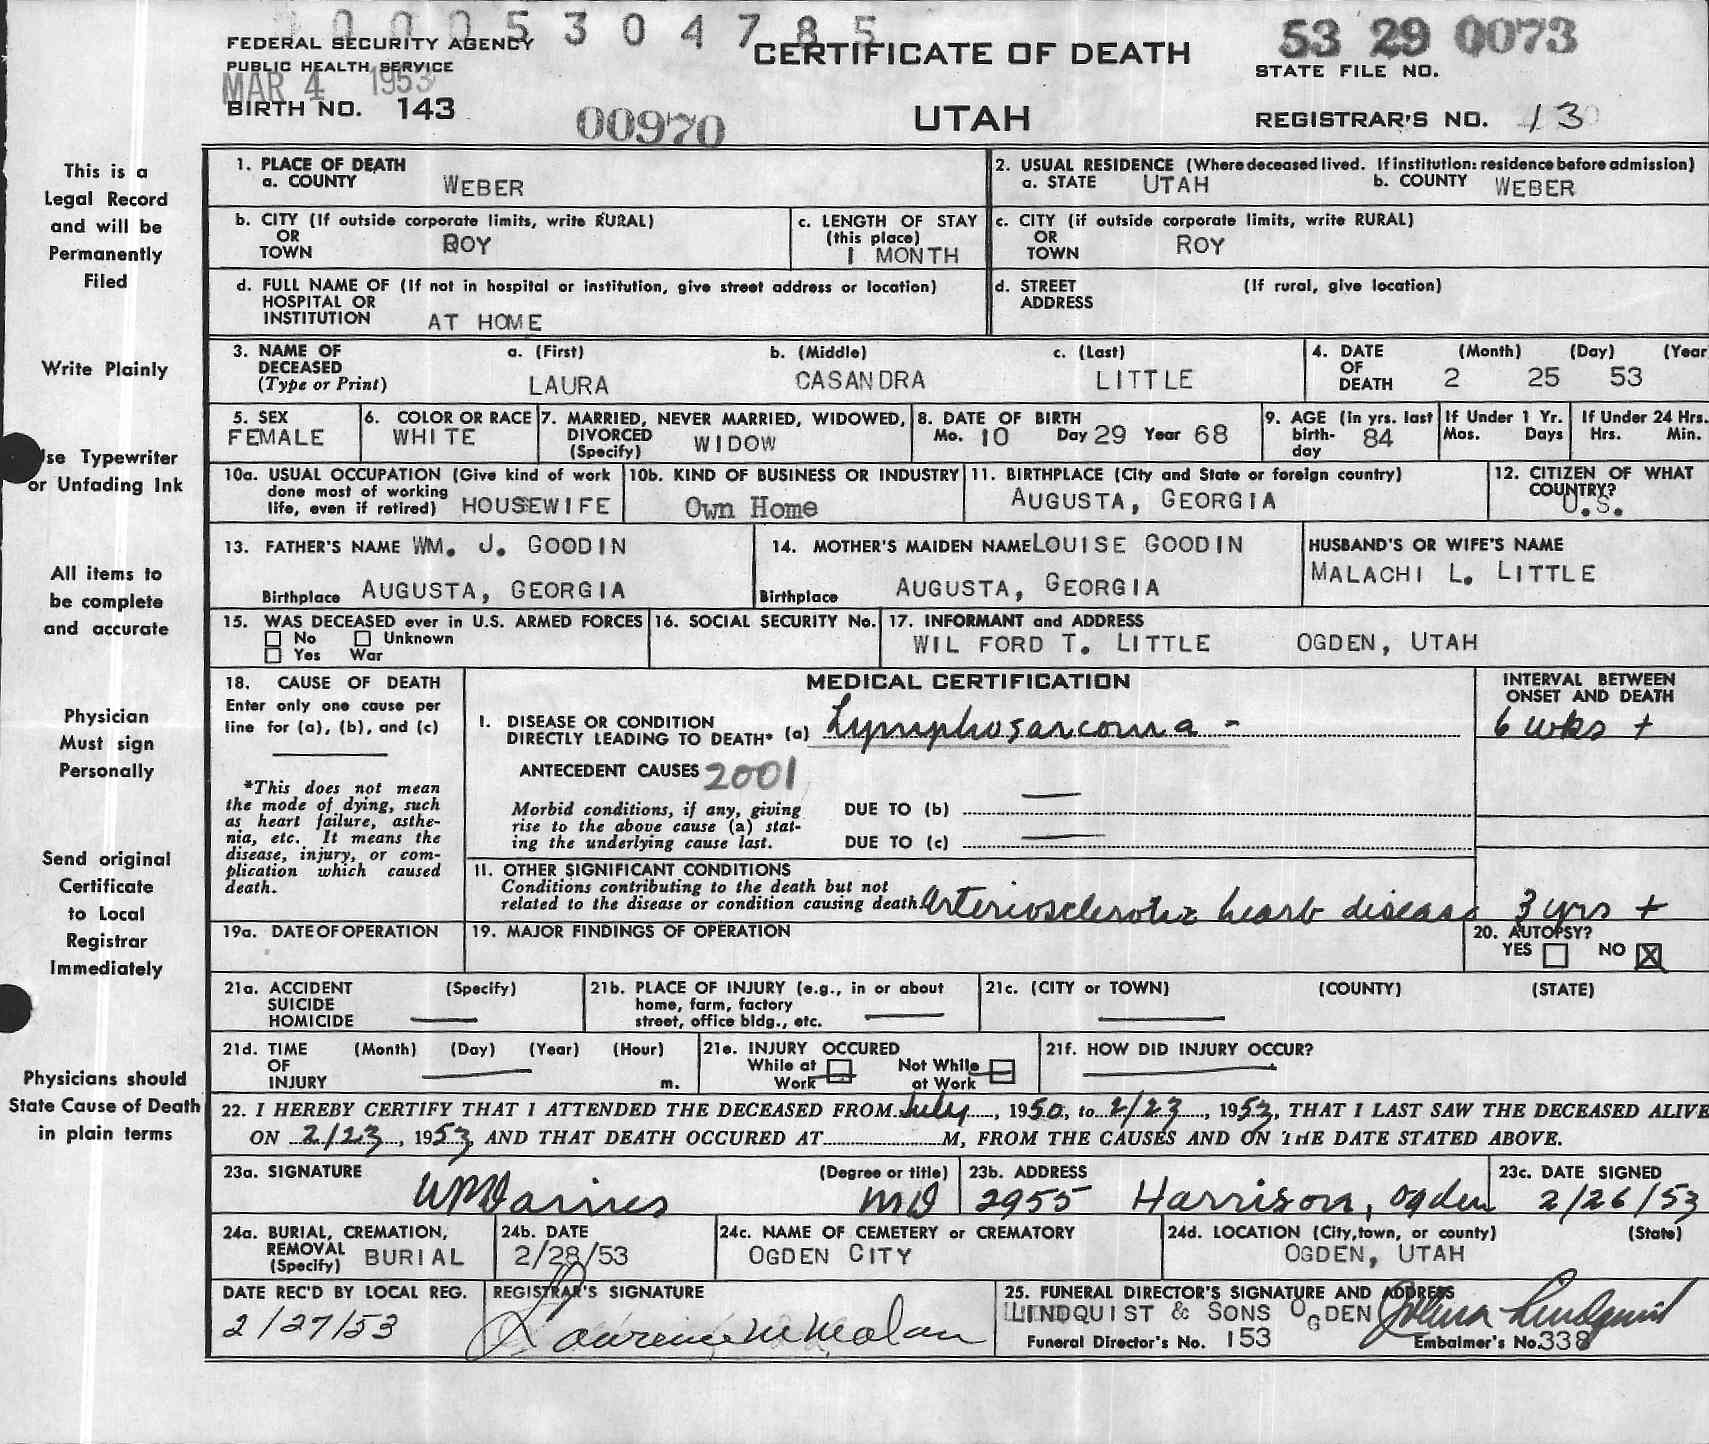 0005304785
FEDERAL SECURITY AGENCY
PUBLIC HEALTH SERVICE
MAR 4 1953
BIRTH NO. 143
00970
CERTIFICATE OF DEATH
UTAH
53 29 0073
STATE FILE NO.
REGISTRAR'S NO. 13
This is a
Legal Record
and will be
Permanently
Filed
Write Plainly
Use Typewriter
or Unfading Ink
All items to
be complete
and accurate
Physician
Must sign
Personally
Send original
Certificate
to Local
Registrar
Immediately
Physicians should
State Cause of Death
in plain terms
1. PLACE OF DEATH
a. COUNTY WEBER
2. USUAL RESIDENCE (Where deceased lived. If institution: residence before admission)
a. STATE UTAH b. COUNTY WEBER
b. CITY (If outside corporate limits, write RURAL)
OR
TOWN ROY
c. LENGTH OF STAY
(this place)
1 MONTH
c. CITY (if outside corporate limits, write RURAL)
OR
TOWN ROY
d. FULL NAME OF (If not in hospital or institution, give street address or location)
HOSPITAL OR
INSTITUTION AT HOME
d. STREET (If rural, give location)
ADDRESS
3. NAME OF DECEASED
(Type or Print)
a. (First) b. (Middle) c. (Last)
LAURA CASANDRA LITTLE
4. DATE OF DEATH (Month) (Day) (Year
2 25 53
5. SEX
FEMALE
6. COLOR OR RACE
WHITE
7. MARRIED, NEVER MARRIED, WIDOWED,
DIVORCED
(Specify) WIDOW
8. DATE OF BIRTH
Mo. 10 Day 29 Year 68
9. AGE (In yrs. last
birth-
day 84
If Under 1 Yr.
Mos. Days
If Under 24 Hrs.
Hrs. Min.
10a. USUAL OCCUPATION (Give kind of work
done most of working
life, even if retired) HOUSEWIFE
10b. KIND OF BUSINESS OR INDUSTRY
Own Home
11. BIRTHPLACE (City and State or foreign country)
AUGUSTA, GEORGIA
12. CITIZEN OF WHAT
COUNTRY?
U.S.
13. FATHER'S NAME WM. J. GOODIN
Birthplace AUGUSTA, GEORGIA
14. MOTHER'S MAIDEN NAME LOUISE GOODIN
Birthplace AUGUSTA, GEORGIA
HUSBAND'S OR WIFE'S NAME
MALACHI L. LITTLE
15. WAS DECEASED ever in U.S. ARMED FORCES
No Unknown
Yes War
16. SOCIAL SECURITY No.
17. INFORMANT and ADDRESS
WIL FORD T. LITTLE OGDEN, UTAH
18. CAUSE OF DEATH
Enter only one cause per
line for (a), (b), and (c)
*This does not mean
the mode of dying, such
as heart failure, asthe-
nia, etc. It means the
disease, injury, or com-
plication which caused
death.
MEDICAL CERTIFICATION
INTERVAL BETWEEN
ONSET AND DEATH
I. DISEASE OR CONDITION
DIRECTLY LEADING TO DEATH* (a) Lymphosarcoma - 6 wks +
ANTECEDENT CAUSES 2001
Morbid conditions, if any, giving
rise to the above cause (a) stat-
ing the underlying cause last.
DUE TO (b) —
DUE TO (c) —
11. OTHER SIGNIFICANT CONDITIONS
Conditions contributing to the death but not
related to the disease or condition causing death. Arteriosclerotic heart disease 3 yrs +
19a. DATE OF OPERATION
19. MAJOR FINDINGS OF OPERATION
20. AUTOPSY?
YES NO X
21a. ACCIDENT (Specify)
SUICIDE
HOMICIDE —
21b. PLACE OF INJURY (e.g., in or about
home, farm, factory
street, office bldg., etc. —
21c. (CITY or TOWN) (COUNTY) (STATE)
—
21d. TIME (Month) (Day) (Year) (Hour)
OF
INJURY — m.
21e. INJURY OCCURED
While at Not While
Work at Work
21f. HOW DID INJURY OCCUR?
—
22. I HEREBY CERTIFY THAT I ATTENDED THE DECEASED FROM July, 1950, to 2/23, 1953, THAT I LAST SAW THE DECEASED ALIVE
ON 2/23, 1953, AND THAT DEATH OCCURED AT M, FROM THE CAUSES AND ON THE DATE STATED ABOVE.
23a. SIGNATURE (Degree or title)
WMDaines MD
23b. ADDRESS
2955 Harrison, Ogden
23c. DATE SIGNED
2/26/53
24a. BURIAL, CREMATION,
REMOVAL
(Specify) BURIAL
24b. DATE
2/28/53
24c. NAME OF CEMETERY OR CREMATORY
OGDEN CITY
24d. LOCATION (City, town, or county) (State)
OGDEN, UTAH
DATE REC'D BY LOCAL REG.
2/27/53
REGISTRAR'S SIGNATURE
Laurence M Malan
25. FUNERAL DIRECTOR'S SIGNATURE AND ADDRESS
LINDQUIST & SONS OGDEN Lindquist
Funeral Director's No. 153 Embalmer's No. 338